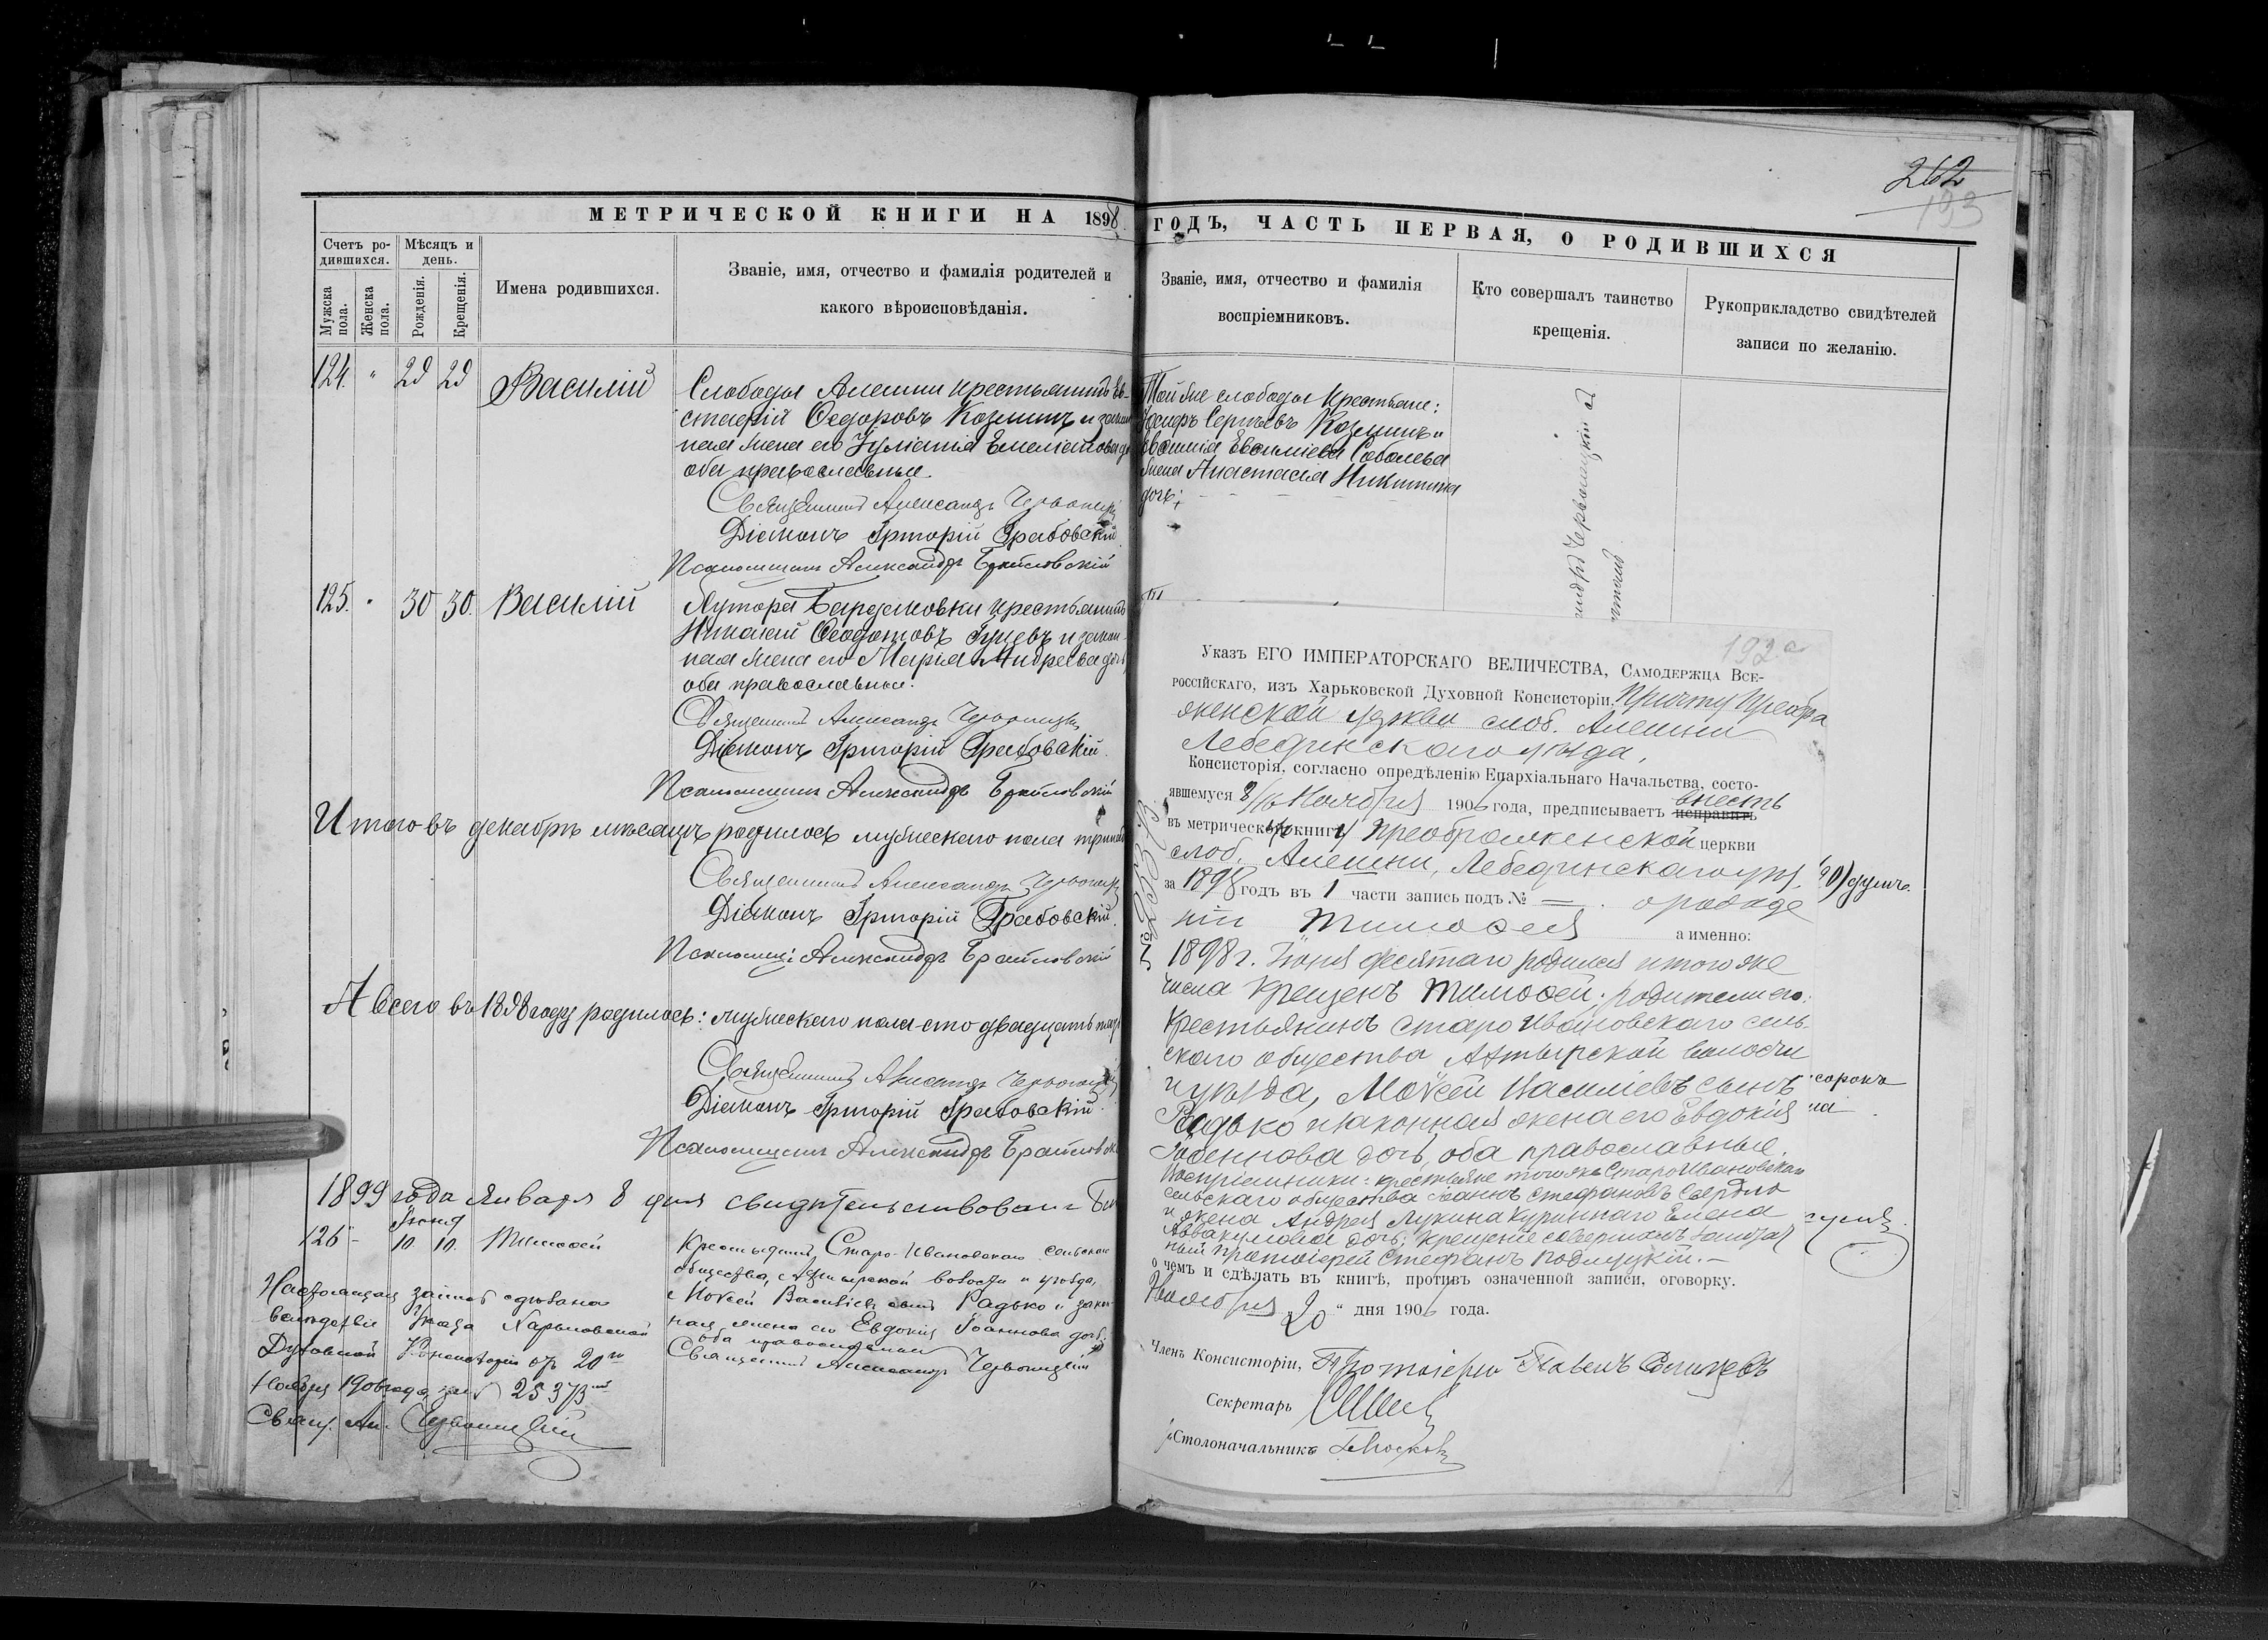 262
193
МЕТРИЧЕСКОЙ КНИГИ НА 1898
ГОДЪ, ЧАСТЬ ПЕРВАЯ, О РОДИВШИХСЯ
Счетъ ро-
дившихся.
Мѣсяцъ и
день.
Мужска
пола.
Женска
пола.
Рожденія.
Крещенія.
Имена родившихся.
Званіе, имя, отчество и фамилія родителей и
какого вѣроисповѣданія.
Званіе, имя, отчество и фамилія
воспріемниковъ.
Кто совершалъ таинство
крещенія.
Рукоприкладство свидѣтелей
записи по желанію.
124. " Василій
Слободы Алешни крестьянинъ Ев-
стафій Ѳедоровъ Козминъ и закон
ная жена его Іуліанія Емеліанова
оба православные.
Священникъ Александръ Червонецкій
Діаконъ Григорій Грабовскій
Псаломщикъ Александръ Браиловскій
Той же слободы крестьяне:
Іосифъ Сергѣевъ Козминъ и
Соболева
жена Анастасія Никитина
дочь;
125. " 30 30. Василій
Хутора крестьянинъ
Николай Ѳеодотовъ и закон
ная жена его Марія Андреева дочь,
оба православные.
Священникъ Александръ Червонецкій
Діаконъ Григорій Грабовскій.
Псаломщикъ Александръ Браиловскій
Итого въ декабрѣ мѣсяцѣ родилось мужескаго пола
Священникъ Александръ Червонецкій
Діаконъ Григорій Грабовскій.
Псаломщ: Александръ Браиловскій
А всего въ 1898 году родилось: мужескаго пола сто двадцать
Священникъ Александръ Червонецкій
Діаконъ Григорій Грабовскій.
Псаломщикъ Александръ Браиловскій
1899 года Января 8 дня свидѣтельствовалъ
Іюня
126 - 10. 10. Тимоѳей
Крестьянинъ Старо-Ивановскаго сельскаго
общества, Ахтырской волости и уѣзда,
Моѵсей Василіевъ сынъ Радько и закон
ная жена его Евдокія Іоаннова дочь,
оба православные
Священникъ Александръ Червонецкій
Настоящая запись сдѣлана
вслѣдствіе Указа Харьковской
Духовной Консисторіи отъ 20го
Ноября 1906 года за № 25373
Свящ. Ал. Червонецкій
192 а
Указъ ЕГО ИМПЕРАТОРСКАГО ВЕЛИЧЕСТВА, Самодержца Все-
россійскаго, изъ Харьковской Духовной Консисторіи, Причту Преобра
женской церкви слоб. Алешни
Лебединскаго уѣзда.
Консисторія, согласно опредѣленію Епархіальнаго Начальства, состо-
явшемуся 8/16 Ноября 1906 года, предписываетъ исправить внесть
въ метрическую книгу Преображенской церкви
слоб. Алешни, Лебединскаго уѣз.
за 1898 годъ въ 1 части запись подъ № — о рожде
ніи Тимоѳея а именно:
1898 г. Іюня десятаго родился и того же
числа крещенъ Тимоѳей; родители его:
Крестьянинъ Старо Ивановскаго сель-
скаго общества Ахтырской волости
и уѣзда, Моѵсей Василіевъ сынъ
Радько и законная жена его Евдокія
Іоаннова дочь, оба православные.
Воспріемники: крестьяне того же Старо Ивановскаго
сельскаго общества Іоаннъ Стефановъ Свердло
и жена Андрея Лукина Куриннаго Елена
Аввакумова дочь; крещеніе совершалъ
протоіерей Стефанъ Подлуцкій. —
о чемъ и сдѣлать въ книгѣ, противъ означенной записи, оговорку.
Ноября „20“ дня 1906 года.
Членъ Консисторіи, Протоіерей Павелъ
Секретарь
Столоначальникъ
сорокъ